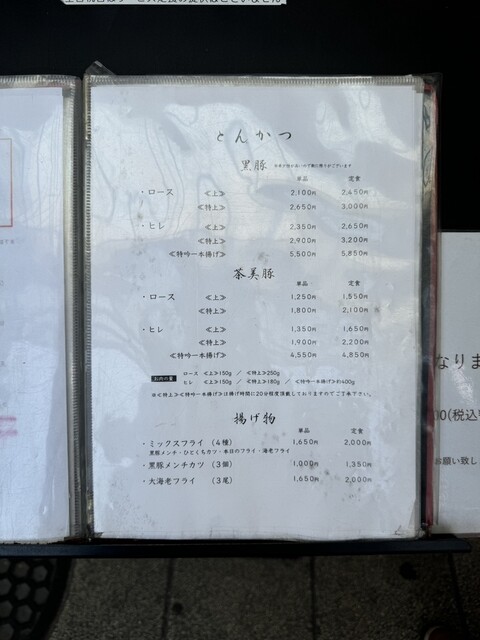 とんかつ
黒豚
単品 定食
・ロース ≪上≫ 2,100円 2,450円
≪特上≫ 2,650円 3,000円
・ヒレ ≪上≫ 2,350円 2,650円
≪特上≫ 2,900円 3,200円
≪特吟一本揚げ≫ 5,500円 5,850円
茶美豚
単品 定食
・ロース ≪上≫ 1,250円 1,550円
≪特上≫ 1,800円 2,100円
・ヒレ ≪上≫ 1,350円 1,650円
≪特上≫ 1,900円 2,200円
≪特吟一本揚げ≫ 4,550円 4,850円
お肉の量 ロース ≪上≫150g ／ ≪特上≫250g
ヒレ ≪上≫150g ／ ≪特上≫180g ／ ≪特吟一本揚げ≫約400g
※≪特上≫≪特吟一本揚げ≫は揚げ時間に20分程度頂戴しておりますのでご了承下さい。
揚げ物
単品 定食
・ミックスフライ (4種) 1,650円 2,000円
黒豚メンチ・ひとくちカツ・本日のフライ・海老フライ
・黒豚メンチカツ (3個) 1,000円 1,350円
・大海老フライ (3尾) 1,650円 2,000円
なりま
00(税込
お願い致し